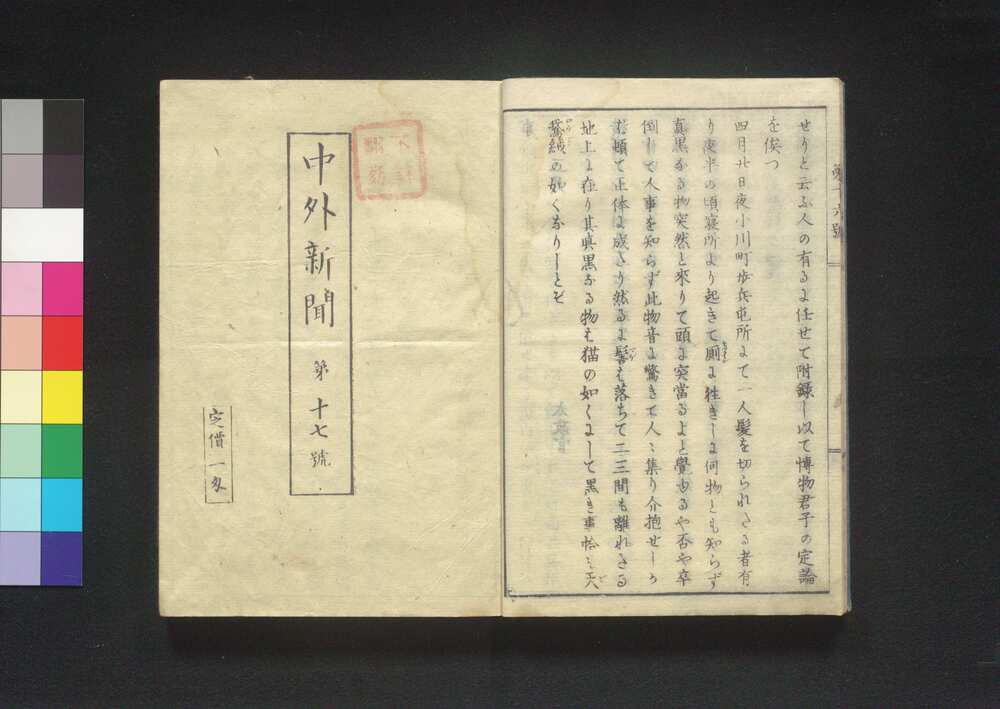 せりと云ふ人の有るよ任せて附録し以て博物君子の定論
を俟つ
四月廿日夜小川町歩兵屯所よて一人髪を切られたる者有
り夜半の頃寝所より起きて厠よ往きしよ何物とも知らず
真黒なる物突然と来りて頭よ突當るよと覺ゆるや否や卒
倒して人事を知らず此物音よ驚きて人〻集り介抱せしか
ば頓て正体よ成たり然るよ髻は落ちて二三間も離れたる
地上よ在り其真黒なる物は猫の如くよして黒き事恰も天
鵞絨の如くなりしとぞ
第十六號
中外新聞 第十七號
定價一匁